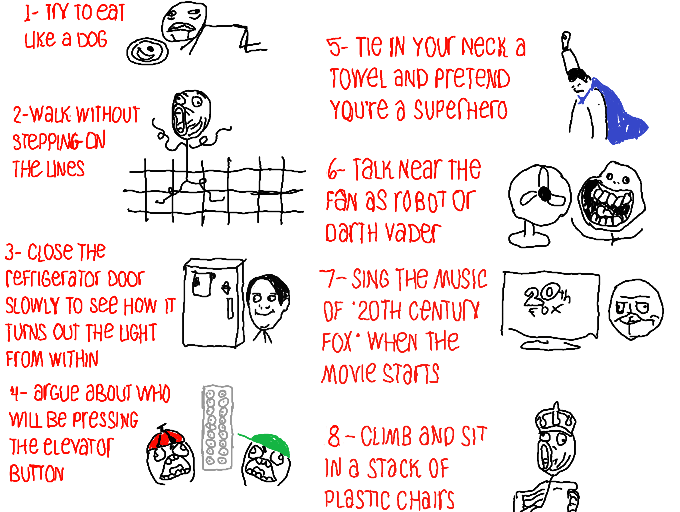 1- TRY TO EAT
LIKE A DOG
2-WALK WITHOUT
STEPPING ON
THE LINES
3- CLOSE THE
REFRIGERATOR DOOR
SLOWLY TO SEE HOW IT
TURNS OUT THE LIGHT
FROM WITHIN
4- ARGUE ABOUT WHO
WILL BE PRESSING
THE ELEVATOR
BUTTON
5- TIE IN YOUR NECK A
TOWEL AND PRETEND
YOU'RE A SUPERHERO
6- TALK NEAR THE
FAN AS ROBOT OR
DARTH VADER
7- SING THE MUSIC
OF "20TH CENTURY
FOX" WHEN THE
MOVIE STARTS
20th
FOX
8- CLIMB AND SIT
IN A STACK OF
PLASTIC CHAIRS